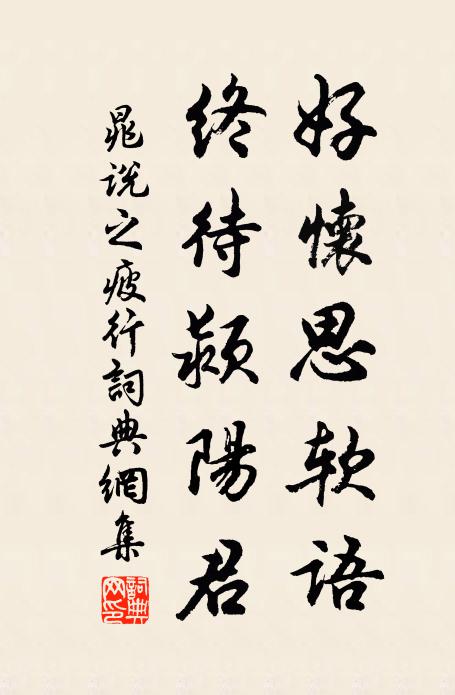 好懷思軟語
終待潁陽君
晁說之疲行詞典網集
詞典網印